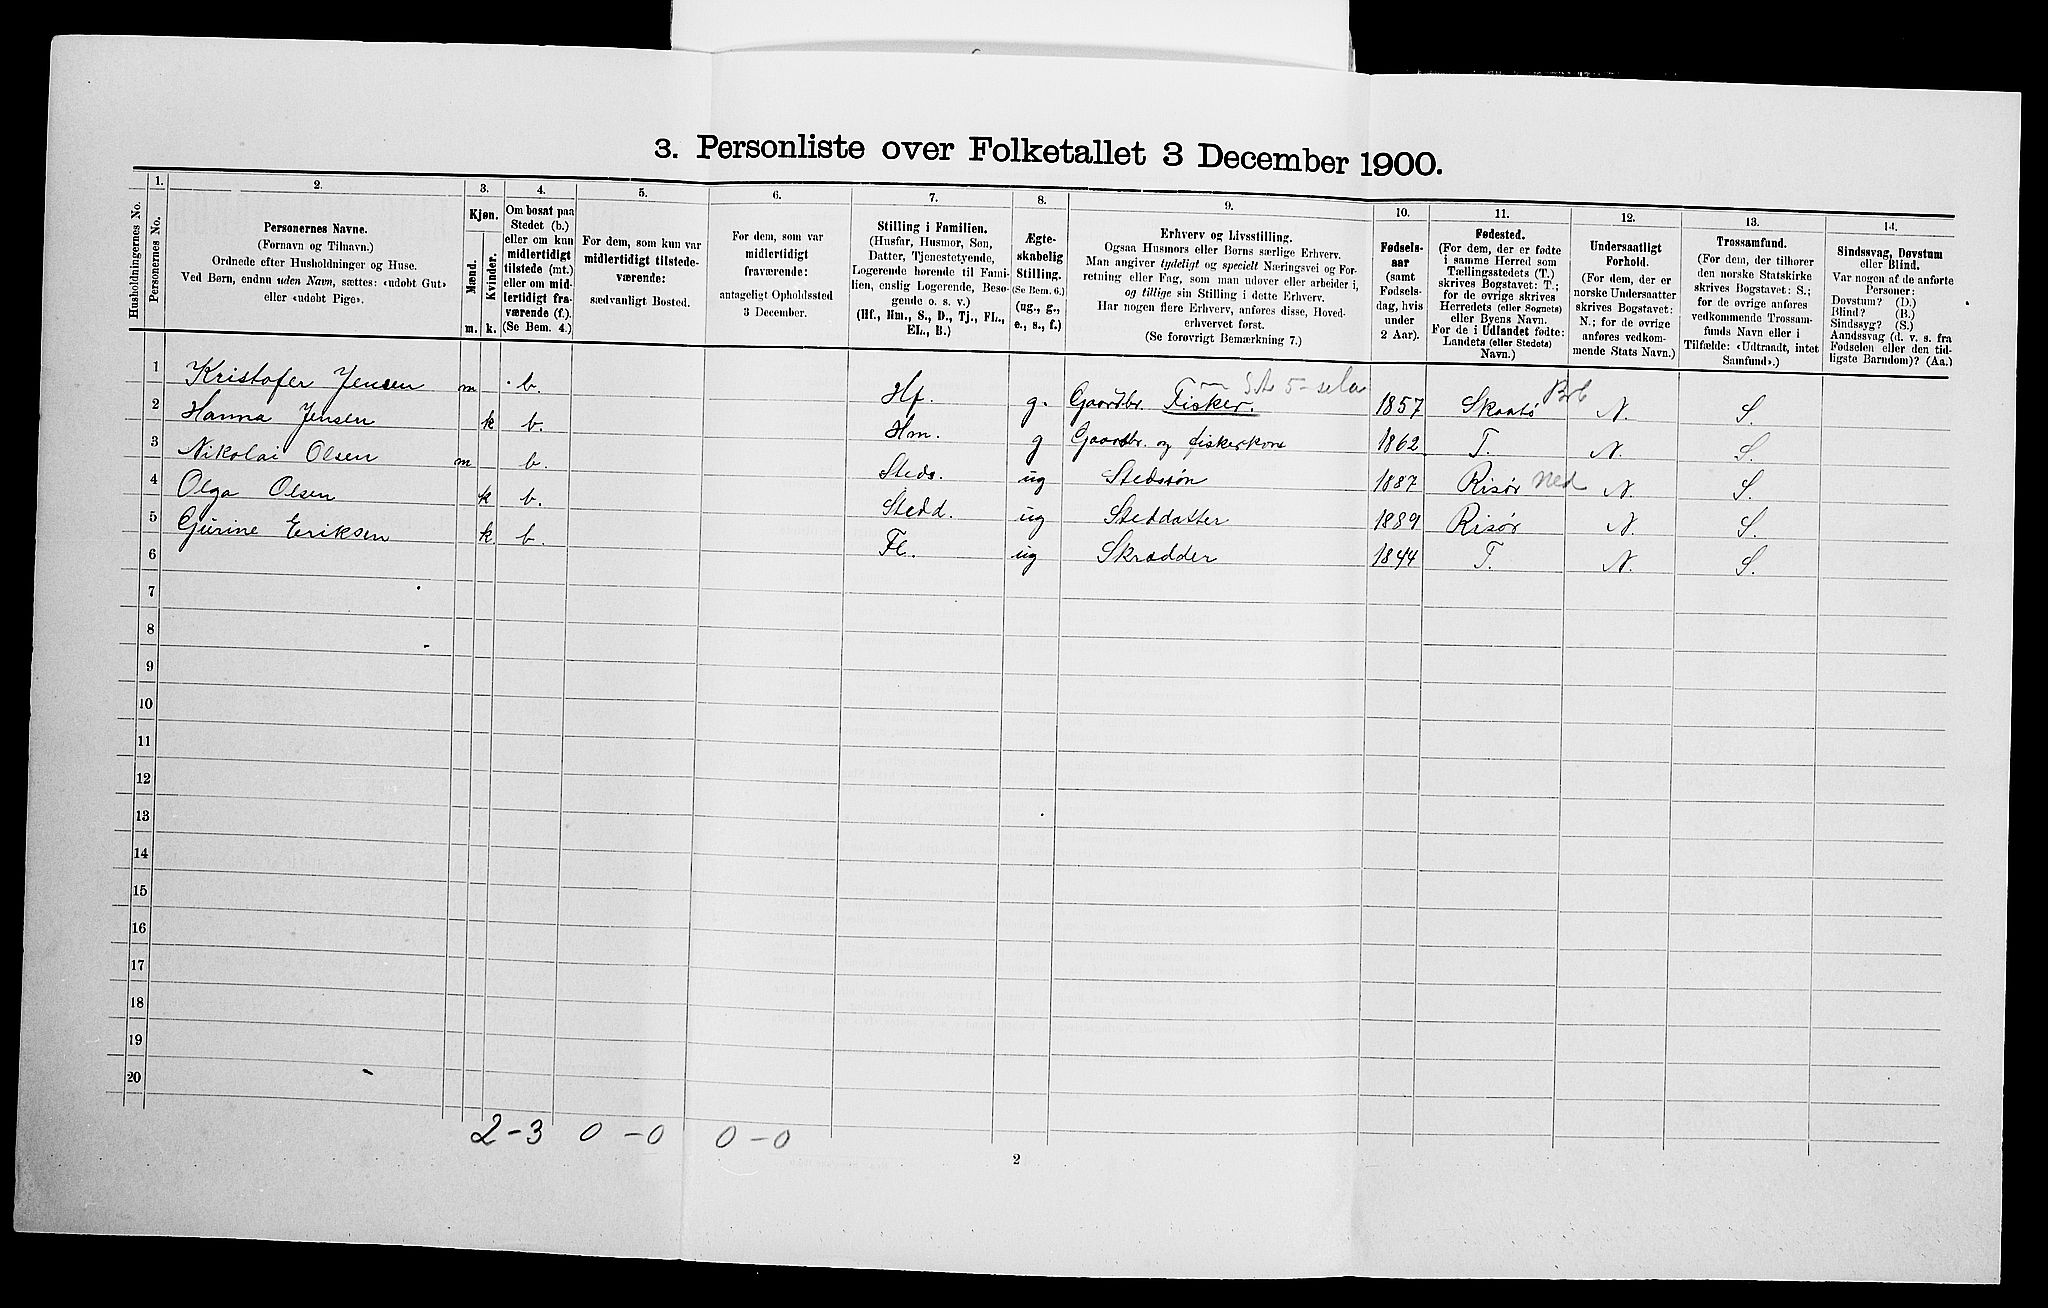 3. Personliste over Folketallet 3 December 1900.
Husholdningernes No.
1.
Personernes No.
2.
Personernes Navne.
(Fornavn og Tilnavn.)
Ordnede efter Husholdninger og Huse.
Ved Børn, endnu uden Navn, sættes: «udøbt Gut»
eller «udøbt Pige».
3.
Kjøn.
Mænd.
Kvinder.
m.
k.
4.
Om bosat paa
Stedet (b.)
eller om kun
midlertidigt
tilstede (mt.)
eller om mid-
lertidigt fra-
værende (f.).
(Se Bem. 4.)
5.
For dem, som kun var
midlertidigt tilstede-
værende:
sædvanligt Bosted.
6.
For dem, som var
midlertidigt
fraværende:
antageligt Opholdssted
3 December.
7.
Stilling i Familien.
(Husfar, Husmor, Søn,
Datter, Tjenestetyende,
Logerende hørende til Fami-
lien, enslig Logerende, Besø-
gende o. s. v.)
(Hf., Hm., S., D., Tj., FL.,
EL., B.)
8.
Ægte-
skabelig
Stilling.
(Se Bem. 6.)
(ug., g.,
e., s., f.)
9.
Erhverv og Livsstilling.
Ogsaa Husmors eller Børns særlige Erhverv.
Man angiver tydeligt og specielt Næringsvei og For-
retning eller Fag, som man udøver eller arbeider i,
og tillige sin Stilling i dette Erhverv.
Har nogen flere Erhverv, anføres disse, Hoved-
erhvervet først.
(Se forøvrigt Bemærkning 7.)
10.
Fødsels-
aar
(samt
Fødsels-
dag, hvis
under
2 Aar).
11.
Fødested.
(For dem, der er fødte
i samme Herred som
Tællingsstedets (T.)
skrives Bogstavet: T.;
for de øvrige skrives
Herredets (eller Sognets)
eller Byens Navn.
For de i Udlandet fødte:
Landets (eller Stedets)
Navn.)
12.
Undersaatligt
Forhold.
(For dem, der er
norske Undersaatter
skrives Bogstavet:
N.; for de øvrige
anføres vedkom-
mende Stats Navn.)
13.
Trossamfund.
(For dem, der tilhører
den norske Statskirke
skrives Bogstavet: S.;
for de øvrige anføres
vedkommende Trossam-
funds Navn eller i
Tilfælde: «Udtraadt, intet
Samfund».)
14.
Sindssvag, Døvstum
eller Blind.
Var nogen af de anførte
Personer:
Døvstum? (D.)
Blind? (B.)
Sindssyg? (S.)
Aandssvag (d. v. s. fra
Fødselen eller den tid-
ligste Barndom)? (Aa.)
1 Kristofer Jensen m b. Hf. g. Gaardbr. Fisker. 1857 Skaatø N. S.
2 Hanna Jensen k b. Hm. g Gaardbr. og fiskerkone 1862 T. N. S.
3 Nikolai Olsen m b. Steds. ug Stedssøn 1887 Risør Ned N. S.
4 Olga Olsen k b. Stedd. ug Steddatter 1889 Risør N. S.
5 Gurine Eriksen k. b. Fl. ug Skrædder 1844 T. N. S.
6
7
8
9
10
11
12
13
14
15
16
17
18
19
20
2-3 0-0 0-0
2